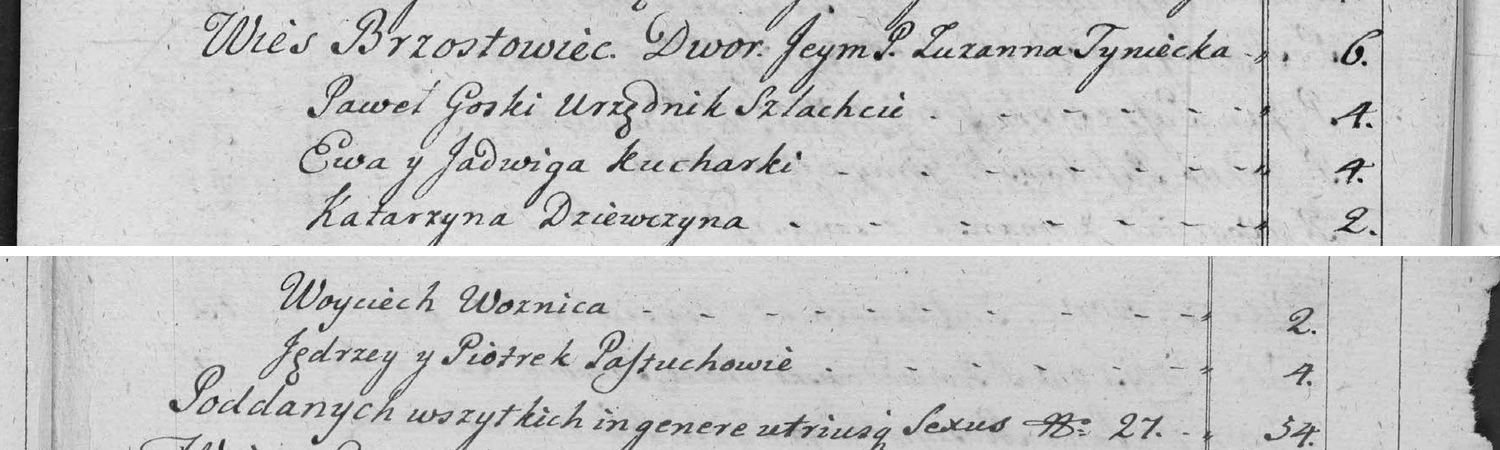 Wiés Brzostowiéc. Dwor. Jeym P. Zuzanna Tyniécka „ . 6.
Paweł Goski Urzędnik Szlachcic . - - - - - - „ 4.
Ewa y Jadwiga Kucharki - - - - - - - „ 4.
Katarzyna Dziéwczyna . - - - - - - - „ 2.
Woyciéch Woznica - - - - - - - - - - „ 2.
Jędrzey y Piotrek Pastuchowie . - - - - - „ 4.
Poddanych wszytkich in genere utriusq Sexus No 27. - „ 54.